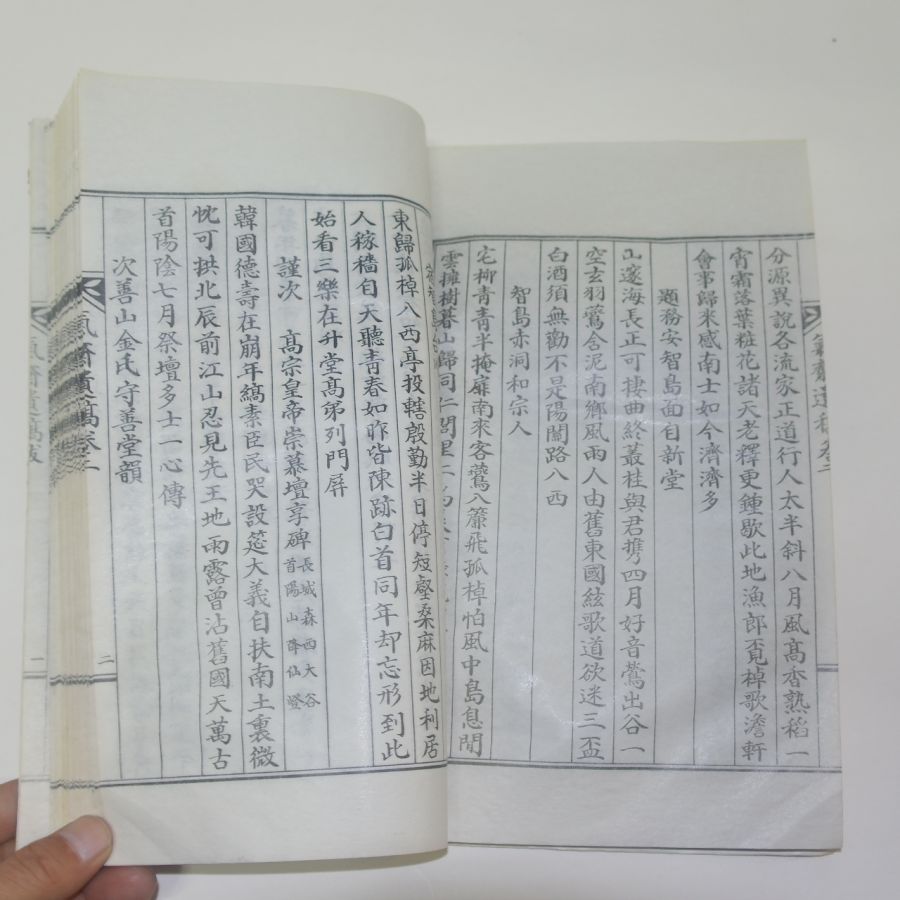 分源異說各流家正道行人太半斜八月風髙香熟稻一
宵霜落葉粧花諸天老釋更鍾歇此地漁郎覓棹歌澹軒
會事歸來感南士如今濟濟多
題務安智島面自新堂
山邃海長正可捿曲終叢桂與君携四月好音鶯出谷一
空玄羽鷰含泥南鄕風雨人由舊東國絃歌道欲迷三盃
白酒須無勸不是陽關路八西
智島亦洞和宗人
宅柳靑靑半掩扉南來客鶯八簾飛孤棹怕風中島息閒
雲擁樹暮山歸同仁問里
東歸孤棹八西亭投轄殷勤半日停短壑桑麻因地利居
人稼穡自天聽靑春如昨皆陳跡白首同年却忘形到此
始看三樂在升堂髙弟列門屛
謹次 髙宗皇帝崇慕壇享碑 長城森西大谷首陽山降仙嶝
韓國德壽在崩年縞素臣民哭設筵大義自扶南土裏微
忱可拱北辰前江山忍見先王地雨露曾沾舊國天萬古
首陽陰七月祭壇多士一心傳
次善山金氏守善堂韻
二